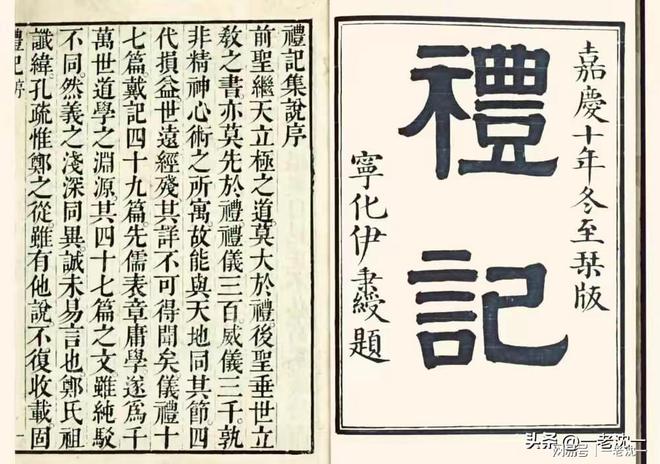 嘉慶十年冬至栞版
禮記
寧化伊秉綬題
禮記集說序
前聖繼天立極之道莫大於禮後聖垂世立
教之書亦莫先於禮禮儀三百威儀三千孰
非精神心術之所寓故能與天地同其節四
代損益世遠經殘其詳不可得聞矣儀禮十
七篇戴記四十九篇先儒表章庸學遂為千
萬世道學之淵源其四十七篇之文雖純駁
不同然義之淺深同異誠未易言也鄭氏祖
讖緯孔疏惟鄭之從雖有他說不復收載固
禮記序
一
头条 @一老沈一
网易号 | 一老沈一